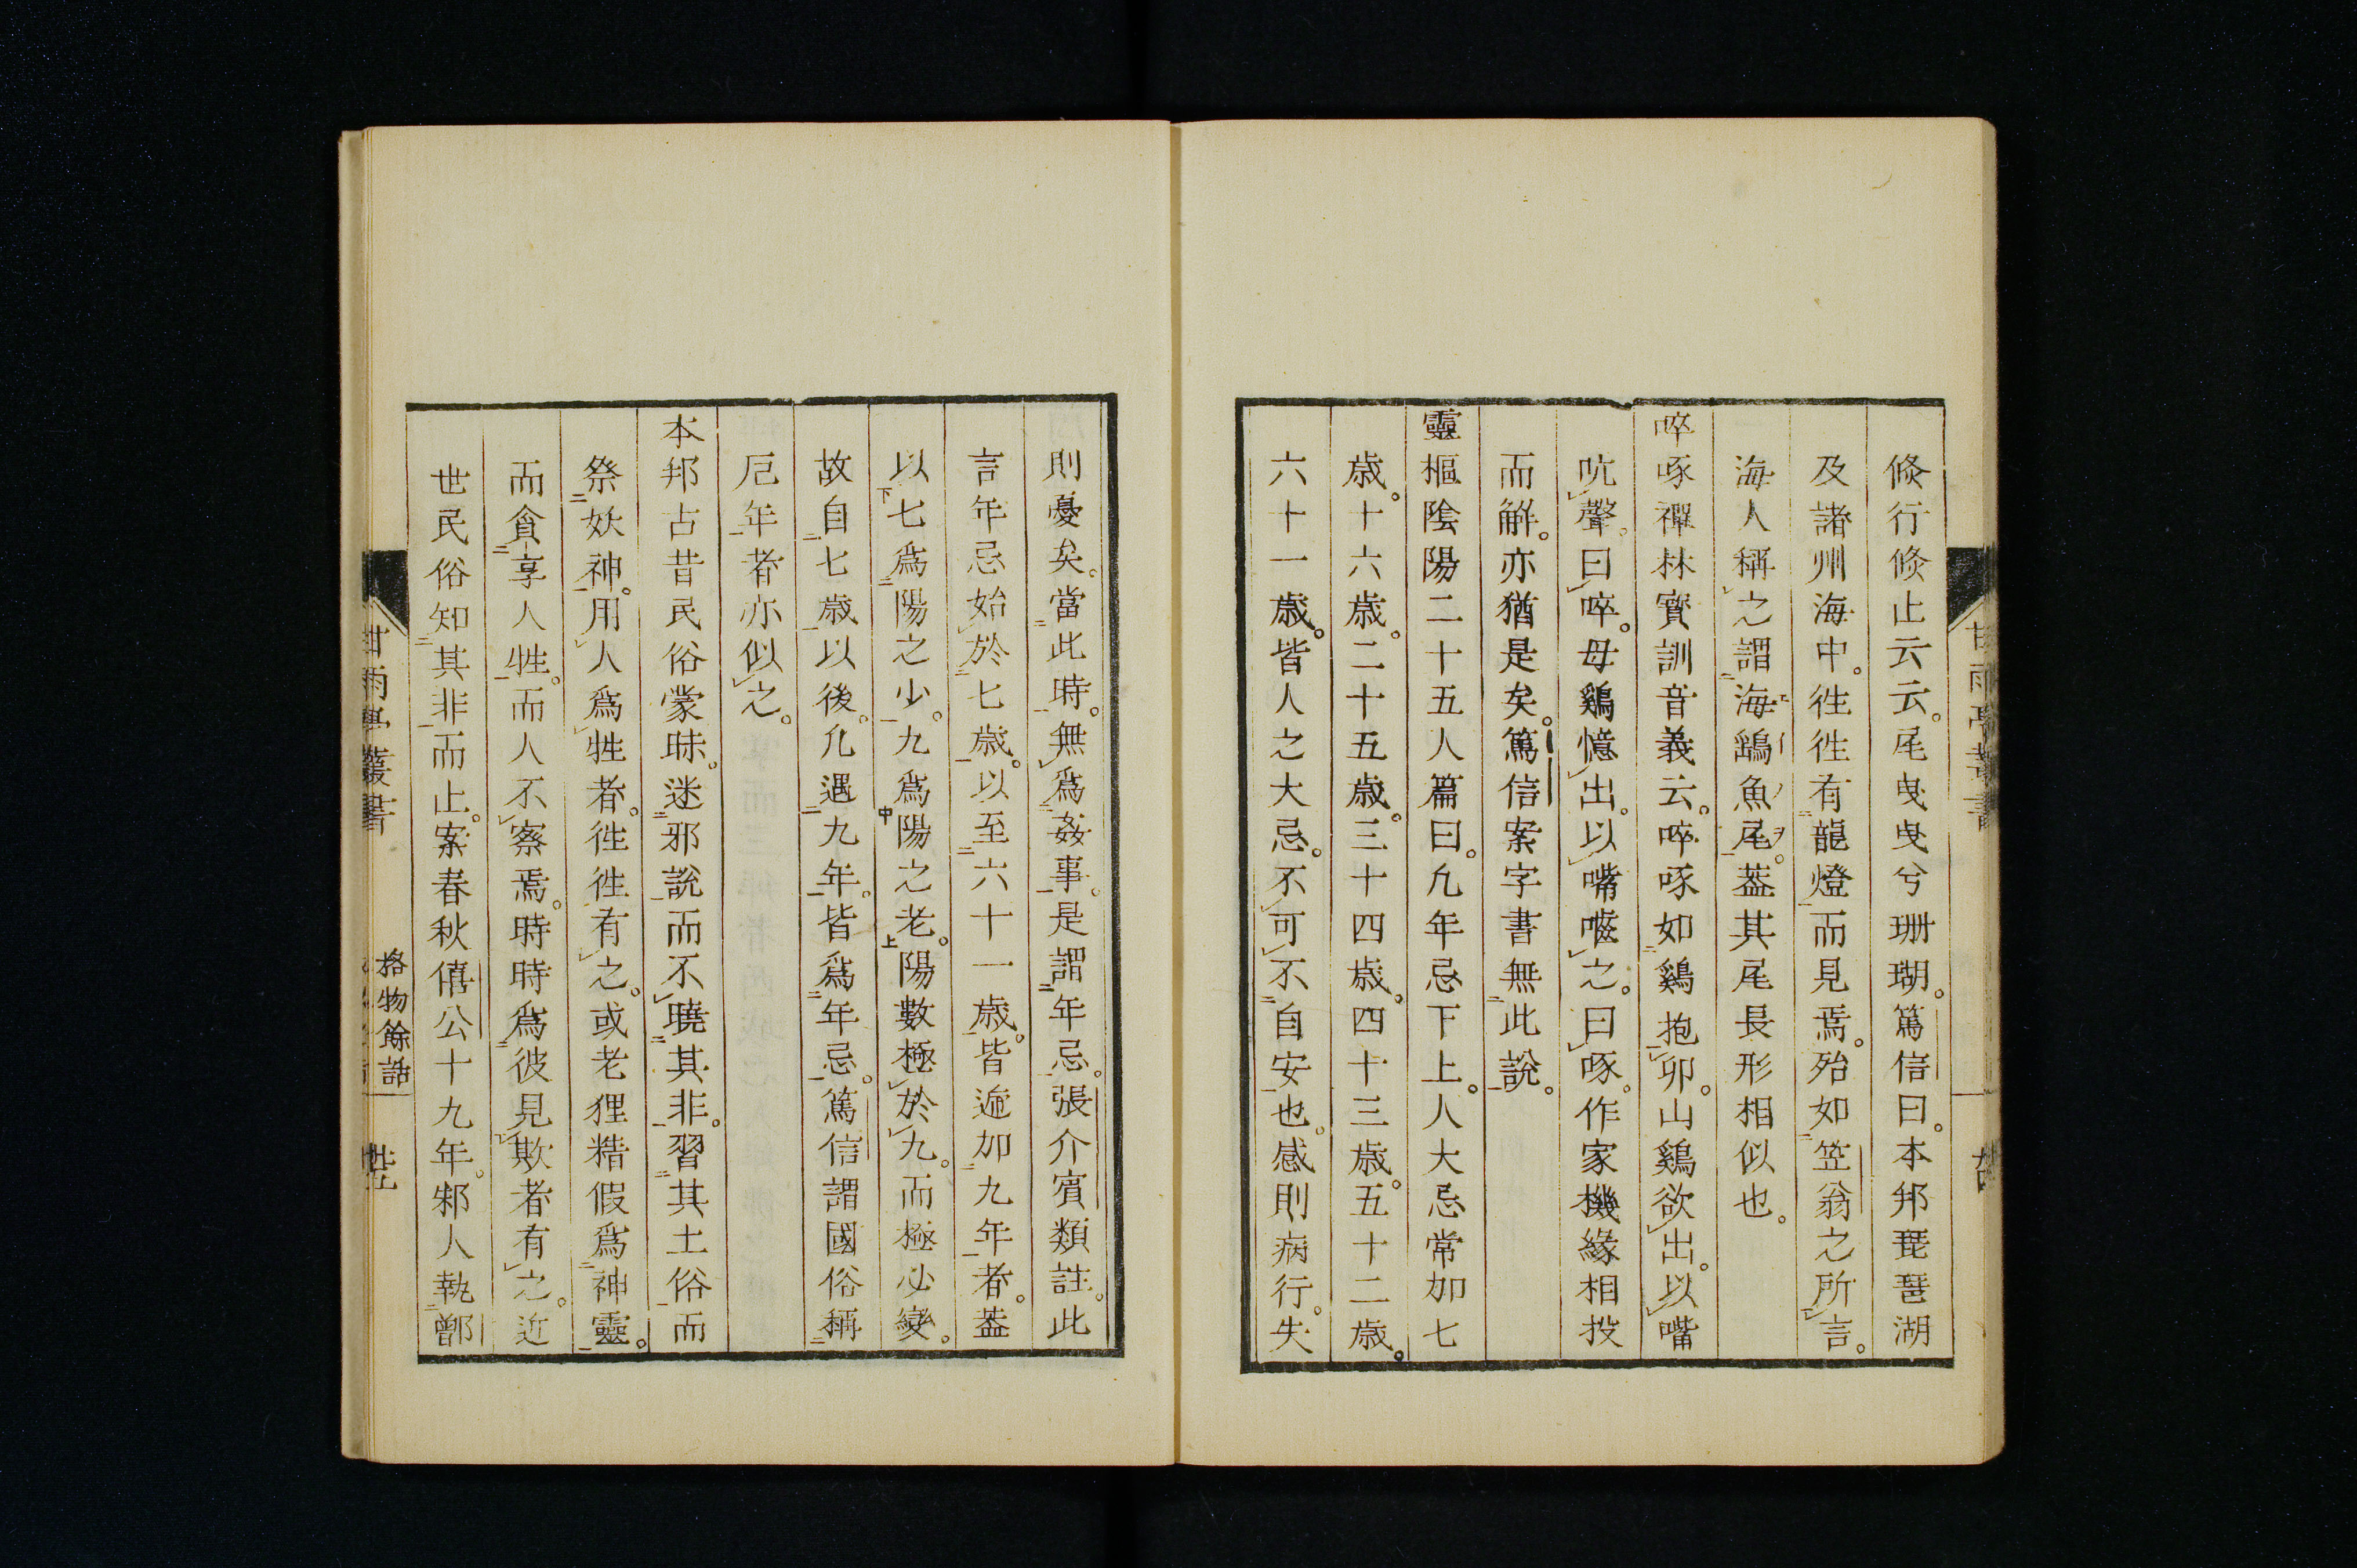 倐行倐止云云。尾曳曳兮珊瑚。篤信曰。本邦琵琶湖
及諸州海中。徃徃有龍燈而見焉。殆如笠翁之所言。
海人稱之謂海鷂魚尾。葢其尾長形相似也。
啐啄禪林寳訓音義云。啐啄如鷄抱卵。山鷄欲出。以嘴
吭聲。曰啐。母鷄憶出。以嘴嚙之。曰啄。作家機緣相投
而解。亦猶是矣。篤信案字書無此說。
靈樞陰陽二十五人篇曰。凢年忌下上。人大忌常加七
歳。十六歳。二十五歳。三十四歳。四十三歳。五十二歳。
六十一歳。皆人之大忌。不可不自安也。感則病行。失
則憂矣。當此時。無爲姦事。是謂年忌。張介賓類註。此
言年忌始於七歳。以至六十一歳。皆遞加九年者。葢
以七爲陽之少。九爲陽之老。陽數極於九。而極必變。
故自七歳以後。凢遇九年。皆爲年忌。篤信謂國俗稱
厄年者亦似之。
本邦占昔民俗蒙昧。迷邪說而不曉其非。習其土俗而
祭妖神。用人爲牲者。徃徃有之。或老狸精假爲神靈。
而貪享人牲。而人不察焉。時時爲彼見欺者有之。近
世民俗知其非而止。案春秋僖公十九年。邾人執鄫
甘雨亭叢書
格物餘話